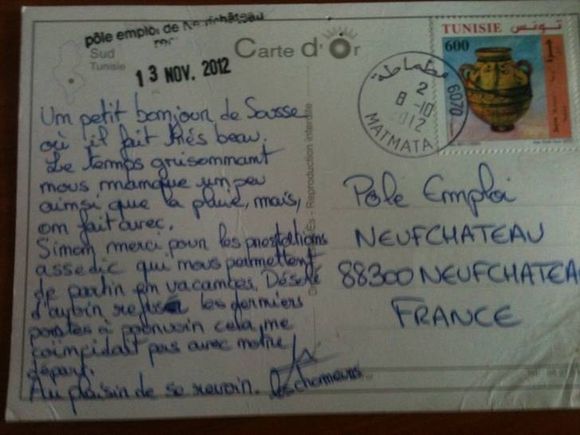 pôle emploi de Neufchâteau
13 NOV. 2012
Sud
Tunisie
Carte d'Or
TUNISIE تونس
600
مطماطة
6070
2
8-10
2012
MATMATA
Reproduction interdite
Un petit bonjour de Sousse
où il fait très beau.
Le temps grisonnant
nous manque un peu
ainsi que la pluie, mais,
on fait avec.
Sinon merci pour les prestations
assedic qui nous permettent
de partir en vacances. Désolé
d'avoir refusé les derniers
postes à pourvoir cela ne
coïncidait pas avec notre
départ.
Au plaisir de se revoir. les chomeurs
Pôle Emploi
NEUFCHATEAU
88300 NEUFCHATEAU
FRANCE